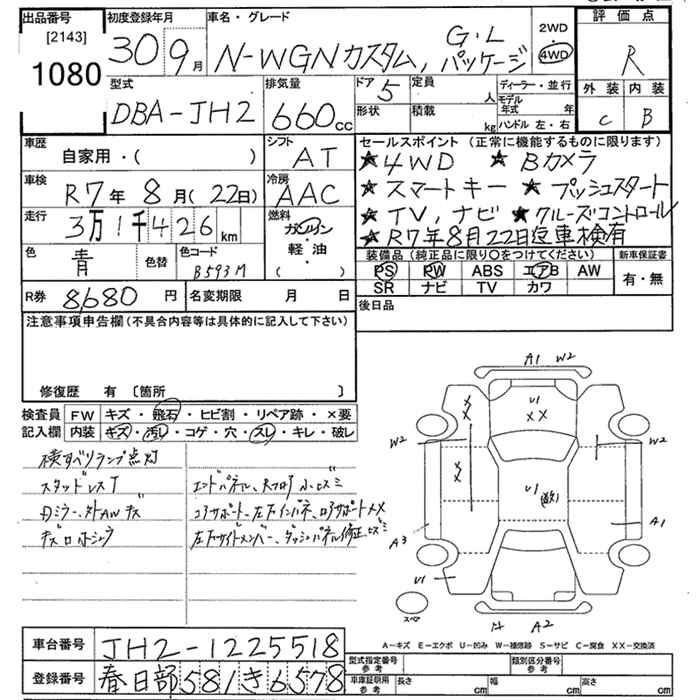 出品番号 初度登録年月 車名・グレード 評価点
[2143]
1080
30 9月 N-WGNカスタム, G・L パッケージ 2WD 4WD R
型式 排気量 ドア 定員 ディーラー・並行 外装 内装
DBA-JH2 660cc 5 人 モデル年式 年 C B
形状 積載 kg ハンドル 左・右
車歴 シフト セールスポイント (正常に機能するものに限ります)
自家用・( ) AT ★4WD ★Bカメラ
車検 冷房 ★スマートキー ★プッシュスタート
R7年 8月(22日) AAC ★TV,ナビ ★クルーズコントロール
走行 燃料 ★R7年8月22日迄車検有
3万1千426km ガソリン 軽油・( )
色 色替 色コード 装備品 (純正品に限り○をつけてください) 新車保証書
青 B593M PS PW ABS エアB AW 有・無
SR ナビ TV カワ
R券 8,680円 名変期限 月 日 後日品
注意事項申告欄 (不具合内容等は具体的に記入して下さい)
修復歴 有 〔箇所 〕
検査員 FW キズ・飛石・ヒビ割・リペア跡・×要
記入欄 内装 キズ・汚レ・コゲ・穴・スレ・キレ・破レ
横すべりランプ点灯
スタッドレスT エンドパネル、
ミラー、外AWキズ コアサポート、左右インパネ、
左右サイドメンバー、ダッシュパネル修正
A1 W2
U1
XX
W2 XX W2
XX
U1
A3 A1
U1
スペア A2
A-キズ E-エクボ U-凹み W-補修跡 S-サビ C-腐食 XX-交換済
車台番号 JH2-1225518
型式指定番号 参考 類別区分番号 参考
登録番号 春日部581き6578
車庫証明用 参考 長さ cm 幅 cm 高さ cm